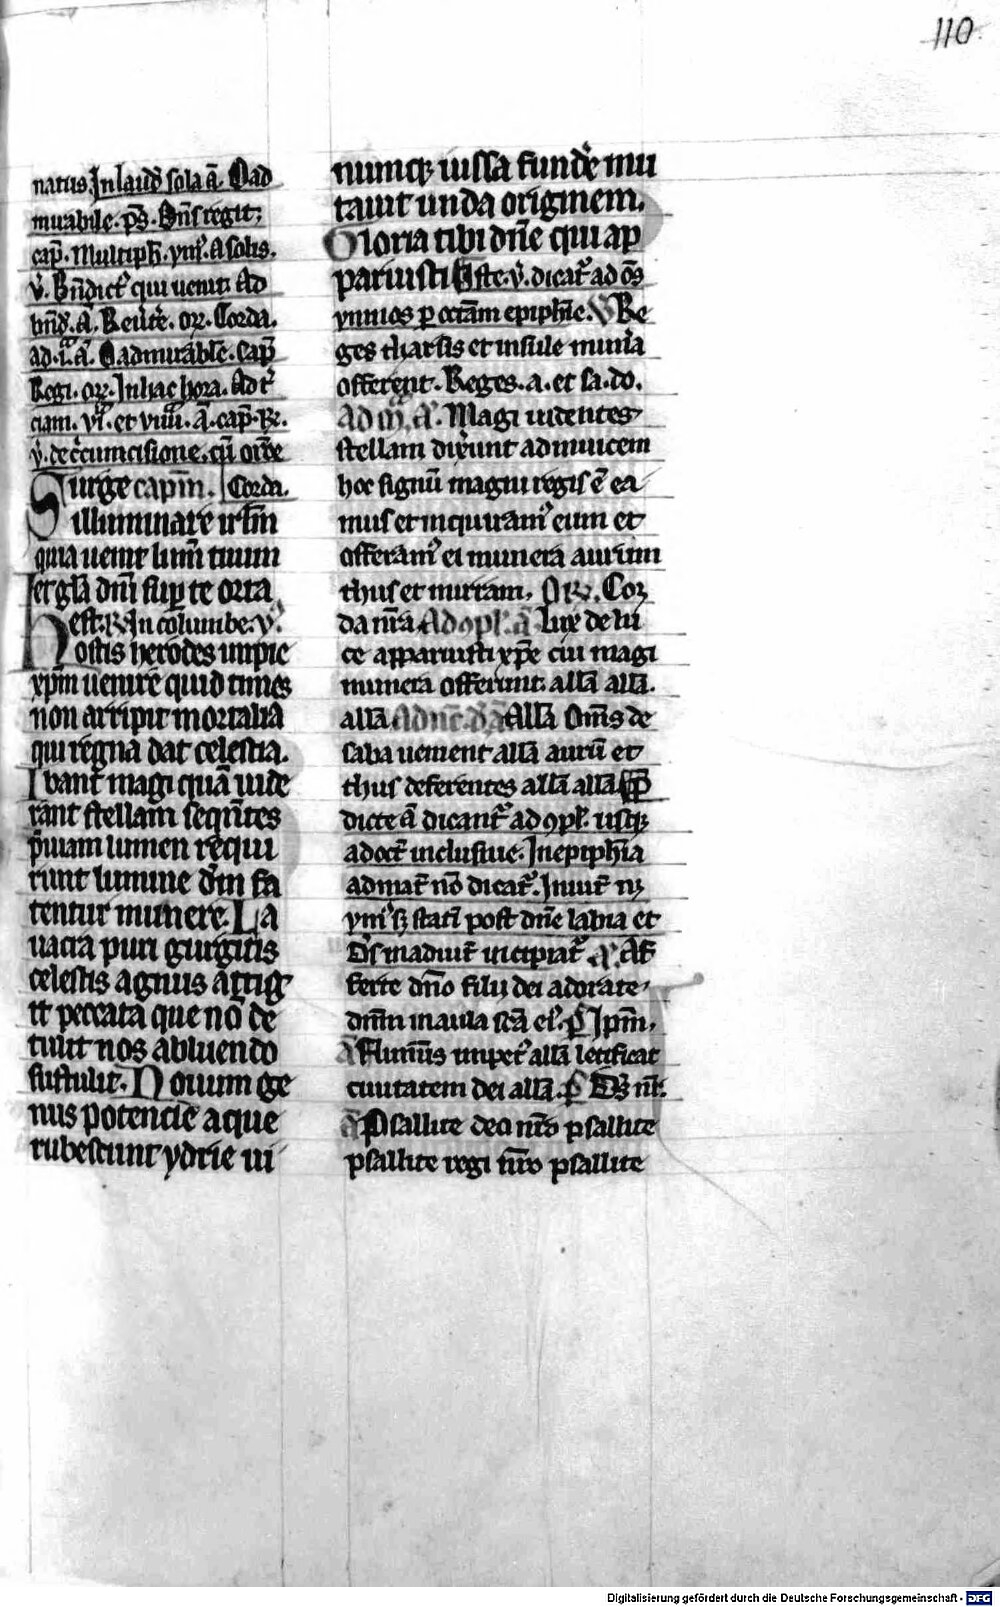 110
natus. In laud̄ sola ā. O ad
muabile. p̄s. Dn̄s regit;
cap̄. Multiph̄. ymꝰ. A solis.
v̄. Bn̄dictꝰ qui uenit. Ad
bn̄d̄. ā. Reūte. oꝝ. Corda.
ad. i. ā. O admirable. Cap̄
Regi. oꝝ. In hac hora. Ad t̄
ciam. vi. et viiii. ā. cap̄. R̄.
v̄. de circumcisione. cū or̄oe
Surge capm̄. Corda.
illuminare irl̄m
quia uenit lum̄ tuum
et gl̄a dn̄i sup̲ te orta
est. R̄. In columbe. v̄.
hostis herodes impie
xp̄m uenire quid times
non arripit mortalia
qui regna dat celestia.
Ibant magi quā uide
rant stellam seqn̄tes
p̄uiam lumen requi
runt lumine d̄m fa
tentur munere. La
uacra puri gurgitis
celestis agnus attig
it peccata que nō de
tulit nos abluendo
sustulit. Nouum ge
nus potencie aque
rubescunt ydrie ui
numqꝫ iussa fundēre mu
tauit unda originem.
Gloria tibi dn̄e qui ap
paruisti Iste. v̄. dicat̄ ad ōs
ymnos p̲ octām epiph̄ie. V̄ Re
ges tharsis et insule mun̄a
offerent. Reges. a. et sa. do.
Ad m̄. ā. Magi uidentes
stellam dix̄unt adinuicem
hoc signū magni regis ē ea
mus et inquiramꝰ eum et
offeramꝰ ei munera aurum
thus et mirram, Oꝝ. Cor
da nr̄a Ad ꝯpl̄. ā Lux de lu
ce apparuisti xp̄e cui magi
munera offerunt. all̄a all̄a.
all̄a Ad nūc d̄. ā All̄a Om̄s de
saba uenient all̄a aurū et
thus deferentes all̄a all̄a Sup̄
dicte ā dicant̄ ad ꝯpl̄. usqꝫ
ad oct̄ inclusiue. In epiph̄ia
ad mat̄ nō dicat̄. Inuit̄ nꝫ
ymꝰ sꝫ statī post dn̄e labia et
Ds̄ in adiut̄ incipiat̄ ā. Af
ferte dn̄o filij dei adorate
dn̄m in aula sc̄a eiꝰ. p̄ Ipm̄.
ā Flumīs impetꝰ all̄a letificat
ciuitatem dei all̄a. p̄ Ds̄ nr̄.
ā Psallite deo nr̄o psallite
psallite regi nr̄o psallite
Digitalisierung gefördert durch die Deutsche Forschungsgemeinschaft - DFG